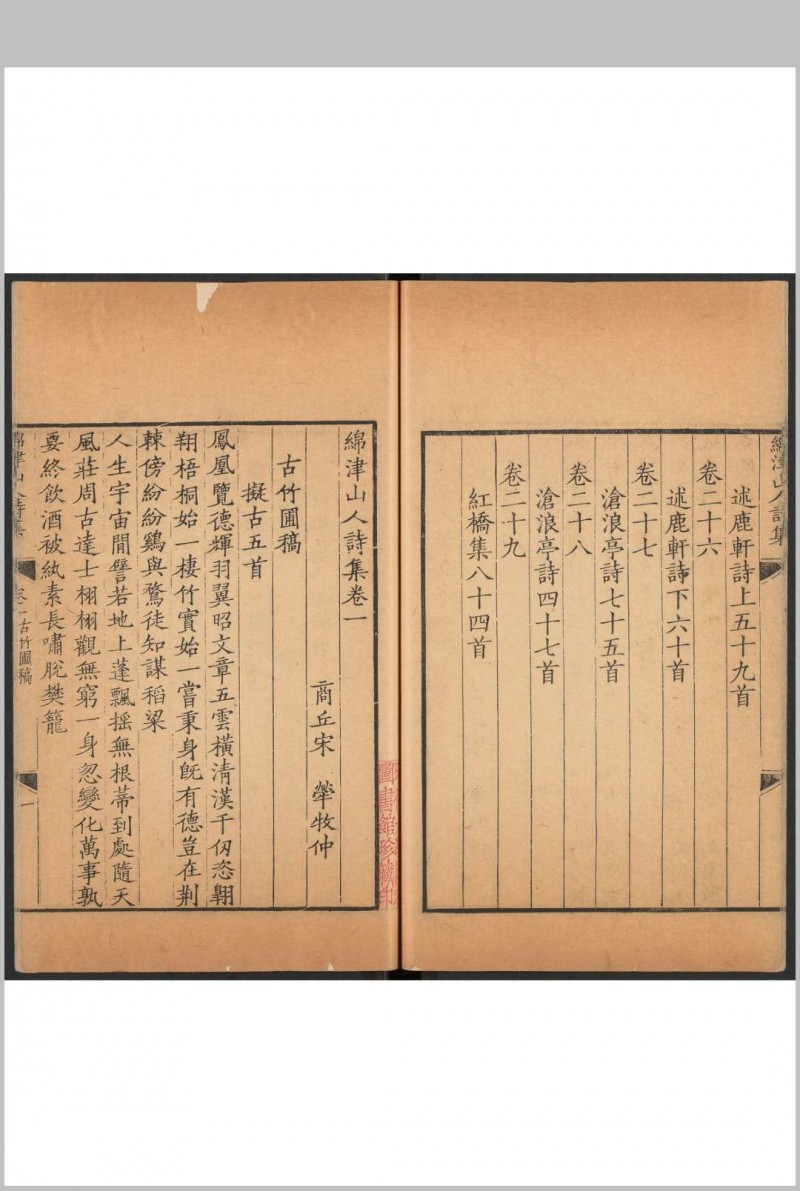 綿津山人詩集
述鹿軒詩上五十九首
卷二十六
述鹿軒詩下六十首
卷二十七
滄浪亭詩七十五首
卷二十八
滄浪亭詩四十七首
卷二十九
紅橋集八十四首
圖書館珍藏印
綿津山人詩集卷一
商丘宋 犖牧仲
古竹圃稿
擬古五首
鳳凰覽德輝羽翼昭文章五雲橫清漢千仞恣翱
翔梧桐始一棲竹實始一嘗秉身既有德豈在荆
棘傍紛紛鷄與鶩徒知謀稻粱
人生宇宙間譬若地上蓬飄搖無根蒂到處隨天
風莊周古達士栩栩觀無窮一身忽變化萬事孰
要終飲酒被紈素長嘯脫樊籠
綿津山人詩集 卷一古竹圃稿 一